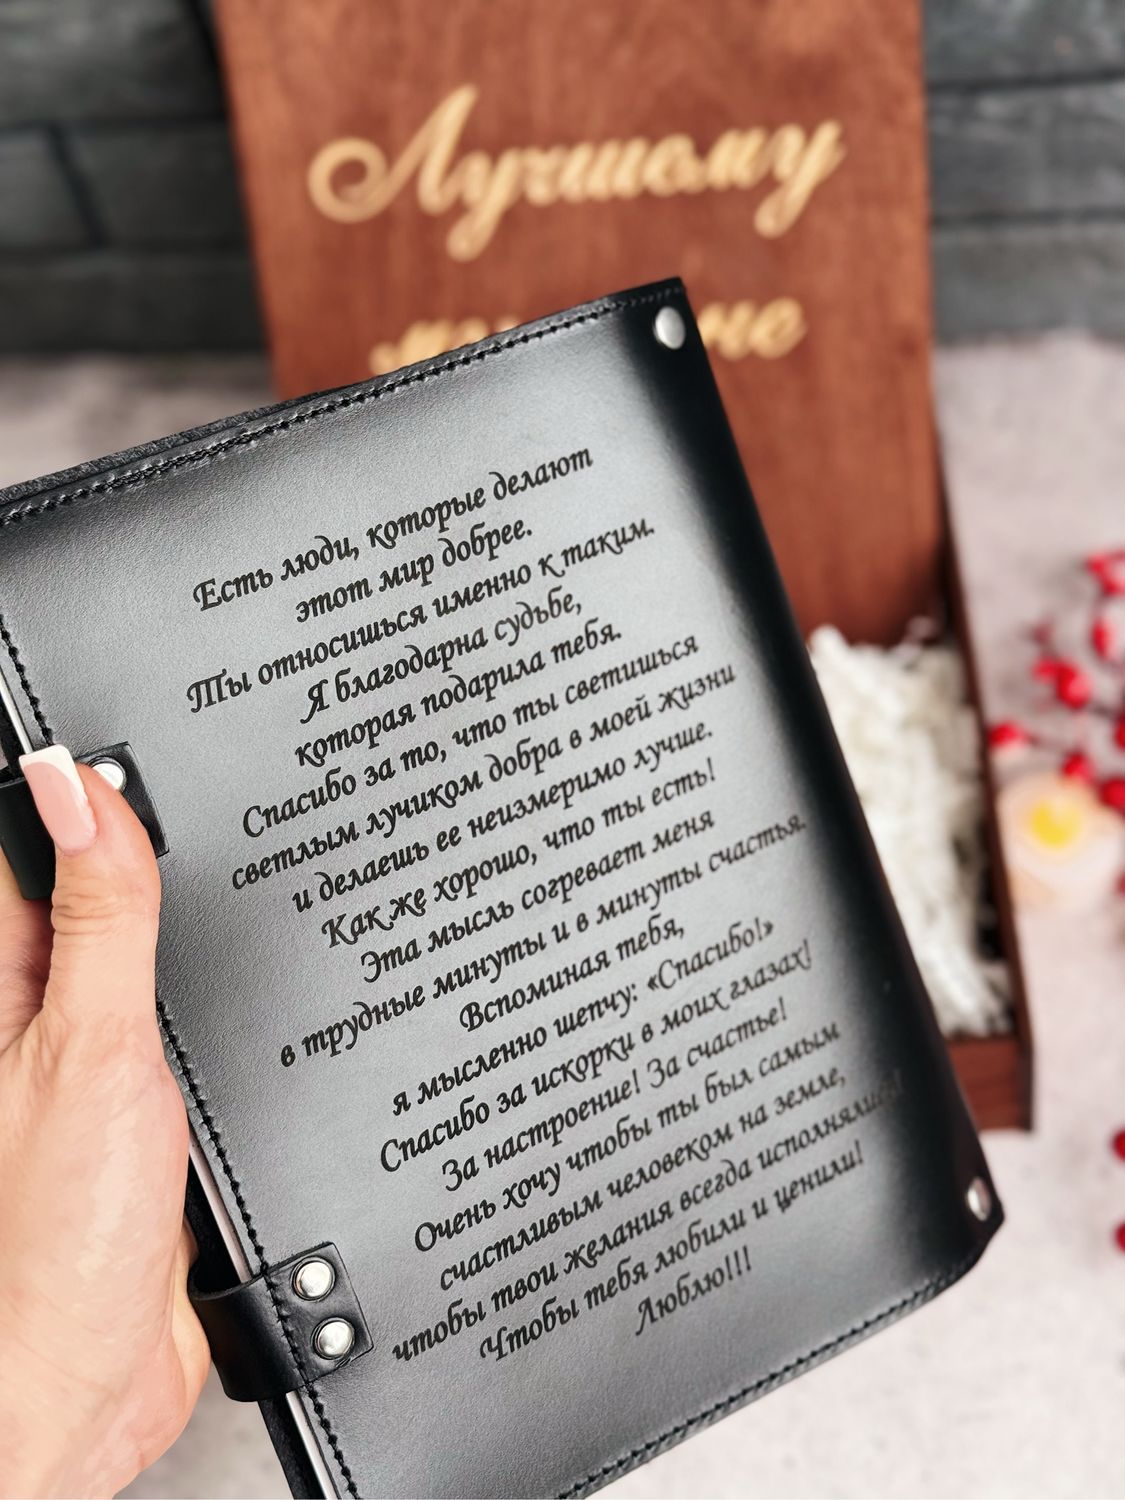 Лучшему
Есть люди, которые делают
этот мир добрее.
Ты относишься именно к таким.
Я благодарна судьбе,
которая подарила тебя.
Спасибо за то, что ты светишься
светлым лучиком добра в моей жизни
и делаешь ее неизмеримо лучше.
Как же хорошо, что ты есть!
Эта мысль согревает меня
в трудные минуты и в минуты счастья.
Вспоминая тебя,
я мысленно шепчу: «Спасибо!»
Спасибо за искорки в моих глазах!
За настроение! За счастье!
Очень хочу чтобы ты был самым
счастливым человеком на земле,
чтобы твои желания всегда исполнялись!
Чтобы тебя любили и ценили!
Люблю!!!